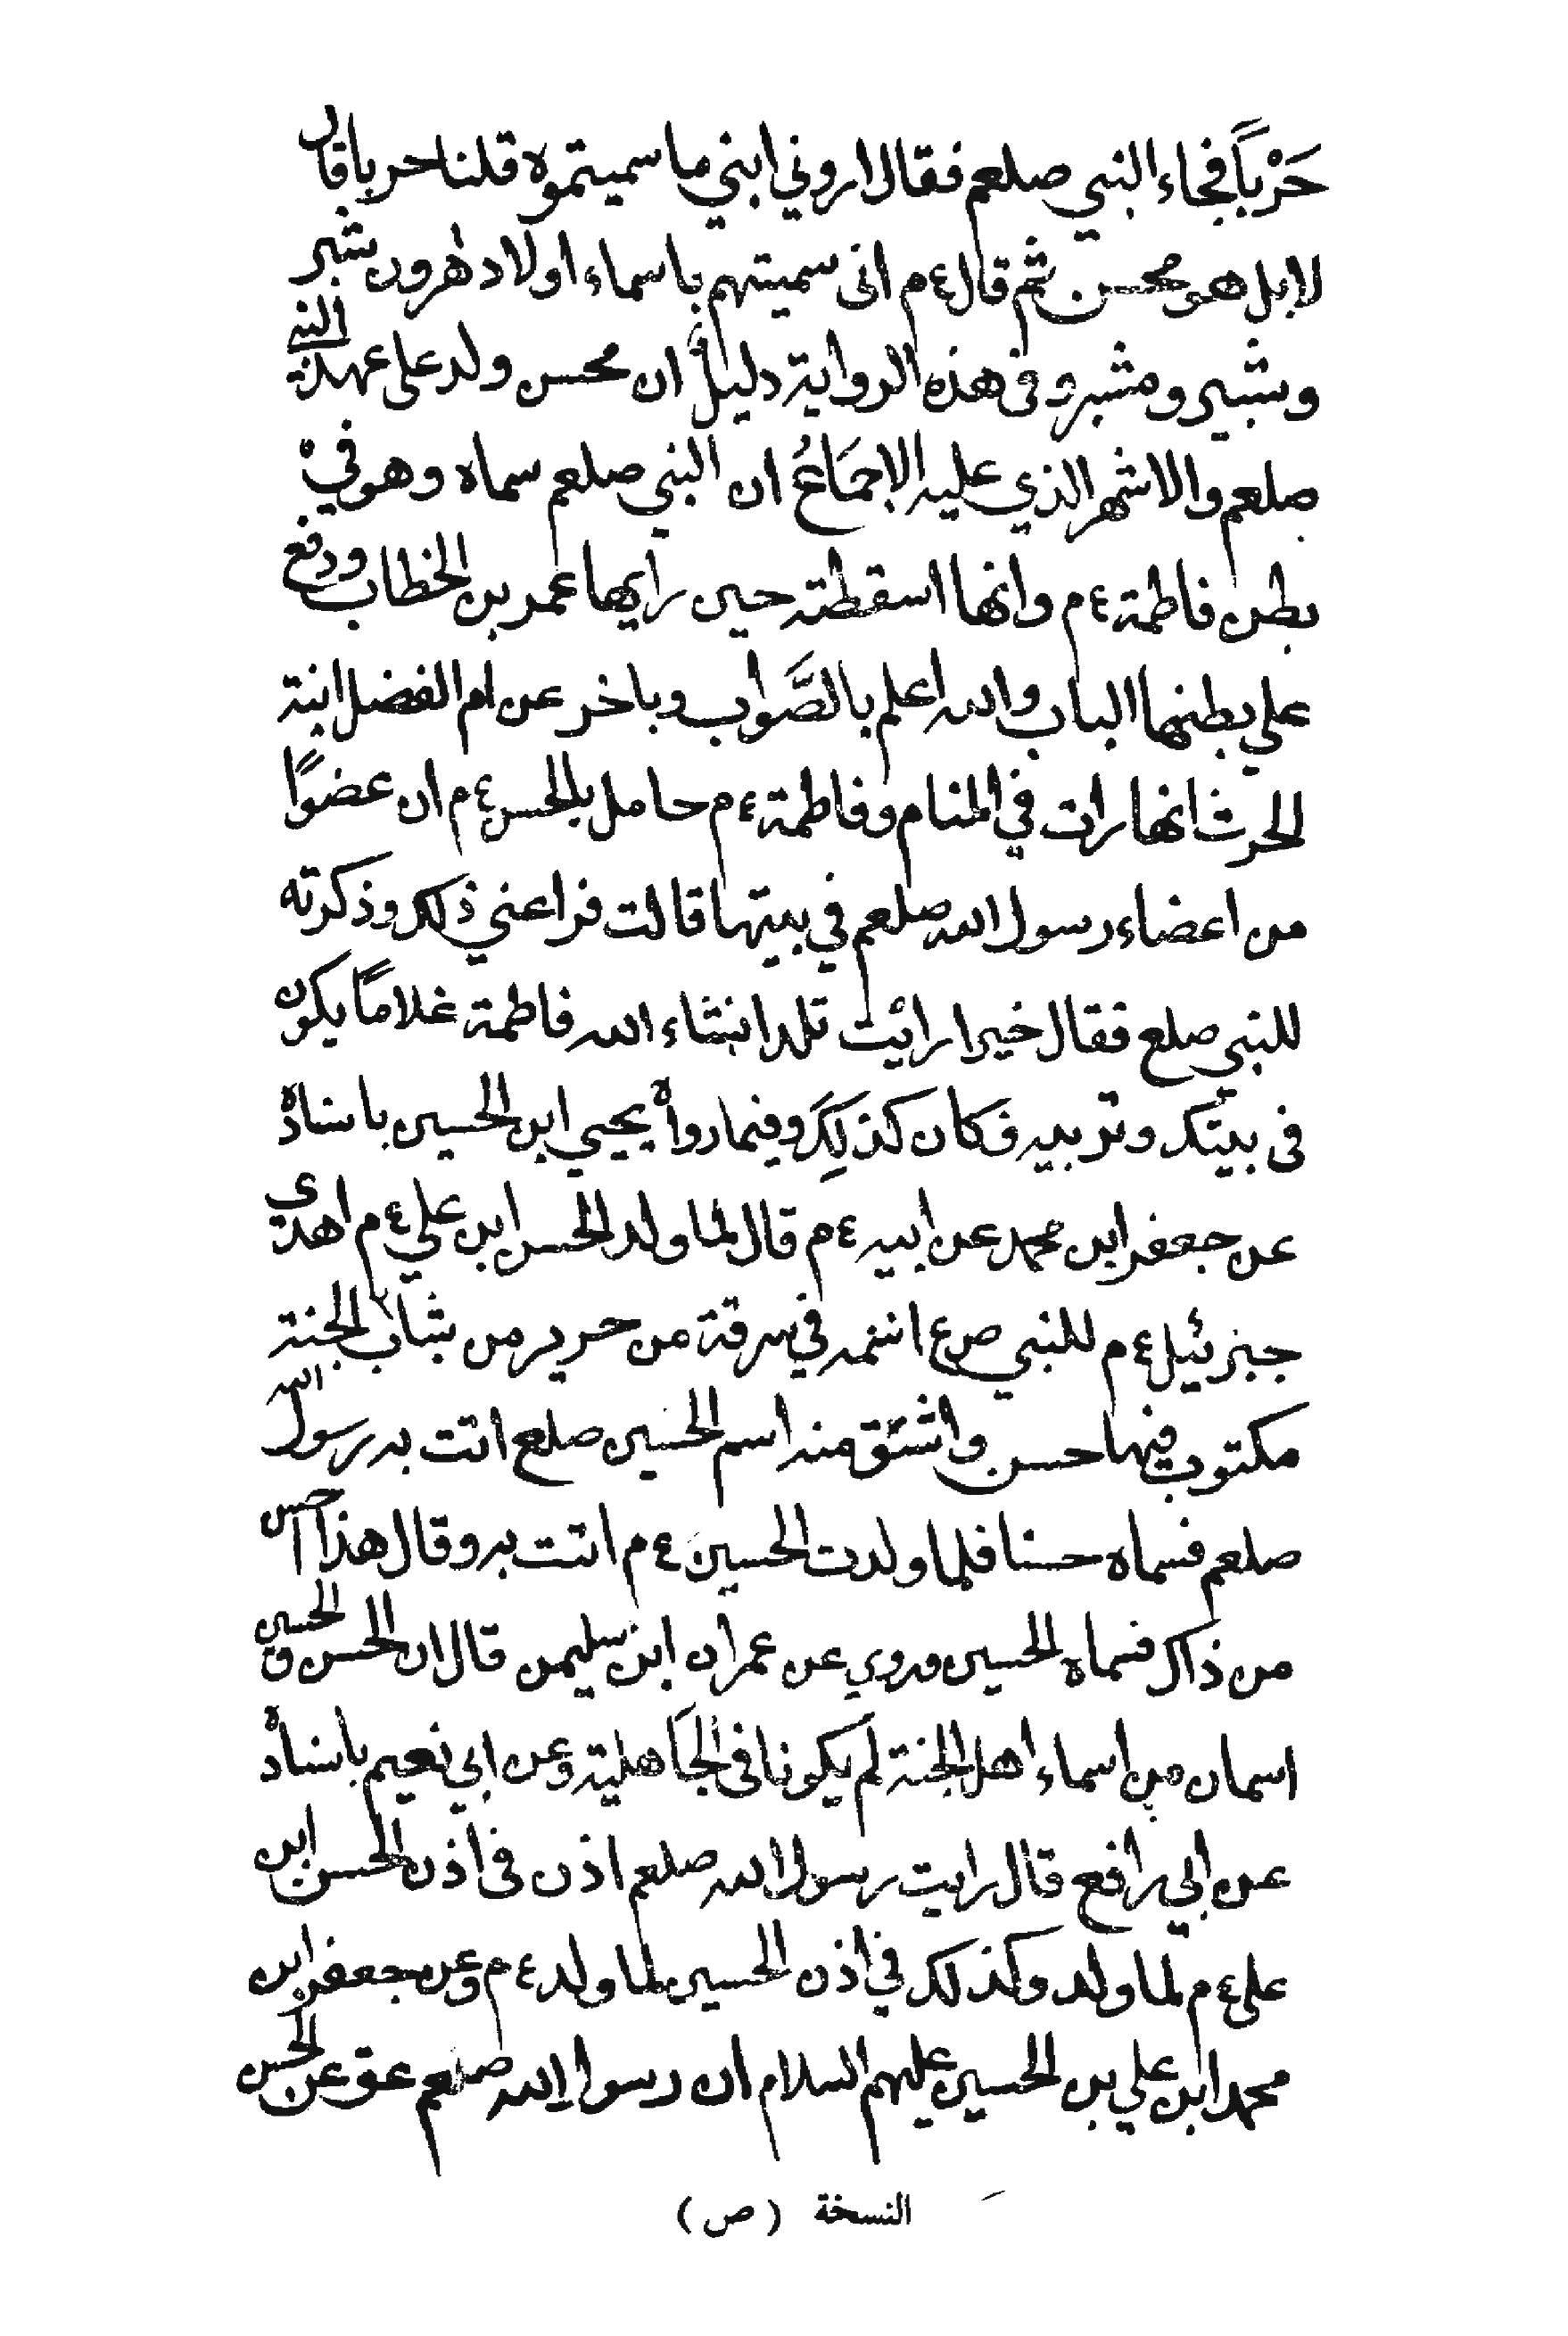 حَرْباً فجاء النبي صلعم فقال اروني ابني ما سميتموه قلنا حربا قال
لا بل هو محسن ثم قال ع م انى سميتهم باسماء اولاد هرون شبر
وشبير ومشبر وفى هذه الرواية دليل ان محسن ولد على عهد النبي
صلعم والاشهر الذي عليه الاجمَاعُ ان النبي صلعم سماه وهو فيْ
بطن فاطمة ع م وانها اسقطته حين رايها عمر بن الخطاب ودفع
علي بطنها الباب والله اعلم بالصَّواب وباخر عن ام الفضل ابنة
الحرث انها رات في المنام وفاطمة ع م حامل بالحسن ع م ان عضوًا
من اعضاء رسول الله صلعم في بيتها قالت فراعني ذلك وذكرته
للنبي صلع فقال خيرا رائت تلد انشاء الله فاطمة غلامًا يكون
فى بيتك وتربيه فكان كذلِكَ وفيما رواه يحيي ابن الحسين باسناده
عن جعفر ابن محمد عن ابيه ع م قال لما ولد الحسن ابن علي ع م اهدي
جبرئيل ع م للنبي ص ع اسمه في سرقة من حرير من ثياب الجنة
مكتوب فيها حسن واشتق منه اسم الحسين صلع اتت به رسول الله
صلعم فسماه حسنا فلما ولدت الحسين ع م اتت به وقال هذا احسن
من ذاك فسماه الحسين وروي عن عمران ابن سليمن قال ان الحسن والحسين
اسمان من اسماء اهل الجنة لم يكونا فى الجَاهلية وعن ابي نعيم باسناده
عن ابي رافع قال رايت رسول الله صلعم اذن فى اذن الحسن ابن
على ع م لما ولد وكذلك في اذن الحسين لما ولد ع م وعن جعفر ابن
محمد ابن علي بن الحسين عليهم السلام ان رسول الله صلعم عق عن الحسن
النسخة (ص)